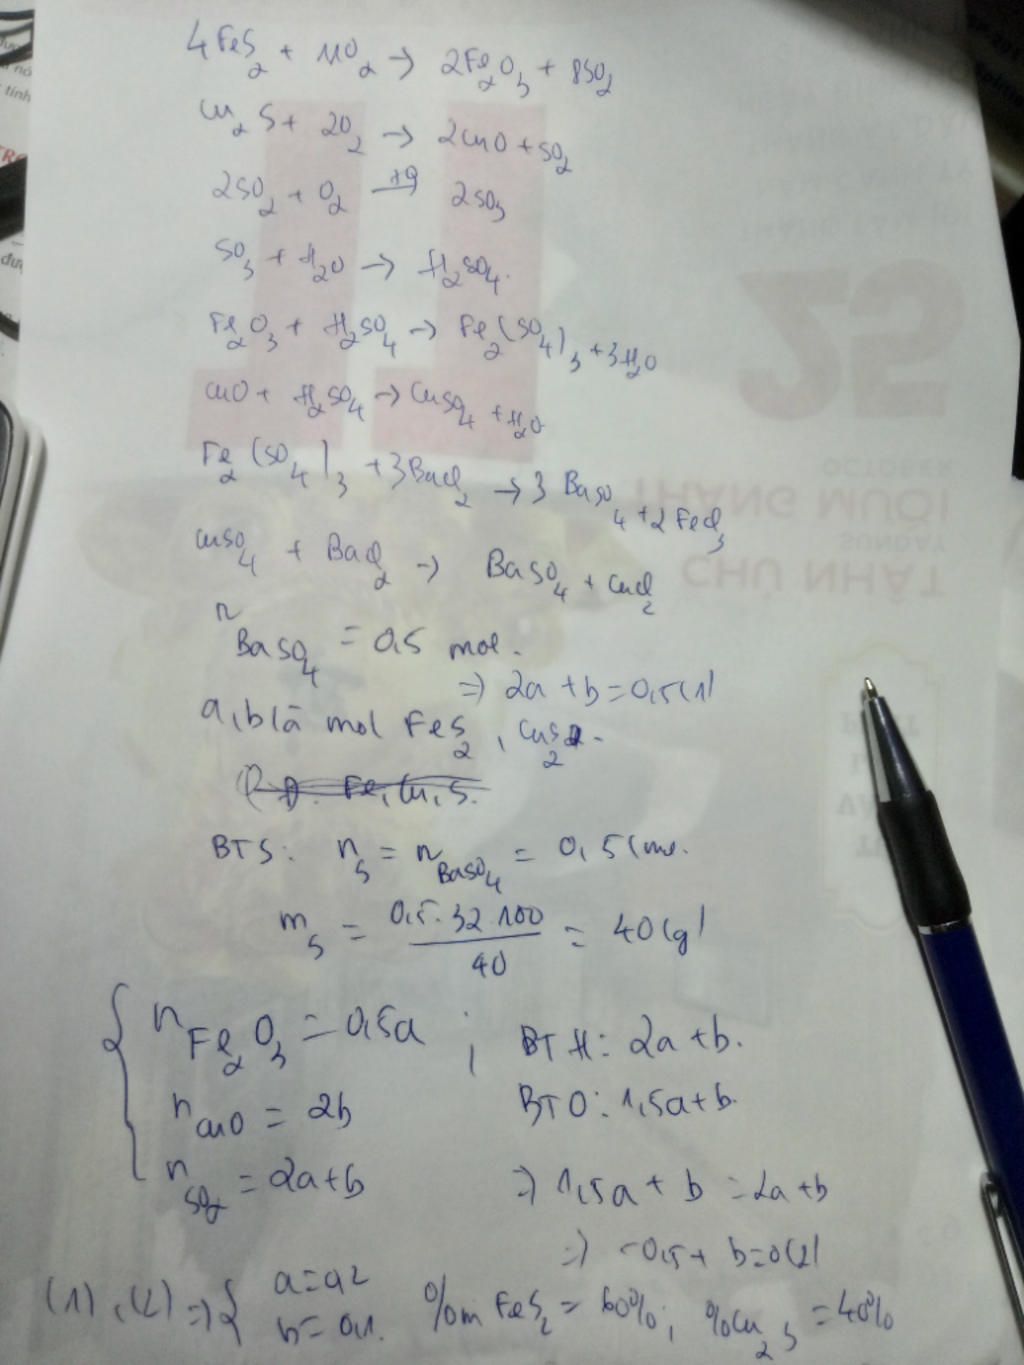 4FeS2 + 11O2 → 2Fe2O3 + 8SO2
Cu2S + 2O2 → 2CuO + SO2
2SO2 + O2 → 2SO3
SO3 + H2O → H2SO4.
Fe2O3 + H2SO4 → Fe2(SO4)3 + 3H2O
CuO + H2SO4 → CuSO4 + H2O
Fe2(SO4)3 + 3BaCl2 → 3BaSO4 + 2FeCl3
CuSO4 + BaCl2 → BaSO4 + CuCl2
nBaSO4 = 0,5 mol.
=> 2a + b = 0,5 (1)
a, b là mol FeS2, Cu2S.
Fe, Cu, S.
BTS: nS = nBaSO4 = 0,5 (mo.
mS = 0,5.32.100 / 40 = 40 (g)
{ nFe2O3 = 0,5a ; BT H: 2a + b.
nCuO = 2b BTO: 1,5a + b.
nSO2 = 2a + b => 1,5a + b = 2a + b
=> -0,5 + b = 0 (2)
(1), (2) => { a = 0,2
b = 0,1. %m FeS2 = 60%; %Cu2S = 40%
25
OCTOBER
THÁNG MƯỜI
SUNDAY
CHỦ NHẬT